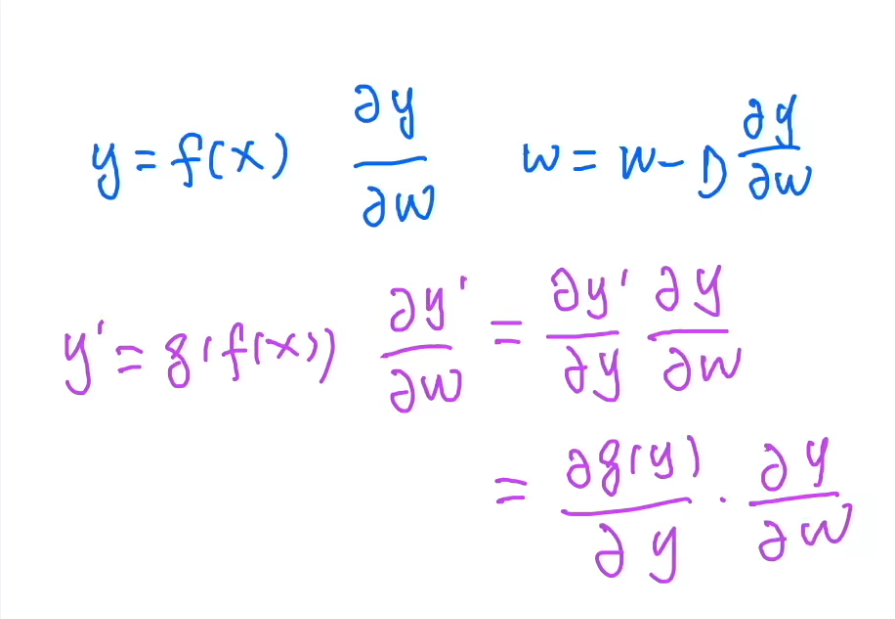 y = f(x) ∂y/∂w w = w - η ∂y/∂w
y' = g(f(x)) ∂y'/∂w = ∂y'/∂y ∂y/∂w
= ∂g(y)/∂y · ∂y/∂w